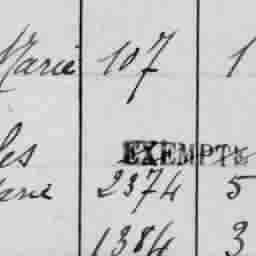 Marie 107 1
les EXEMPTÉ
2374 5
1384 3